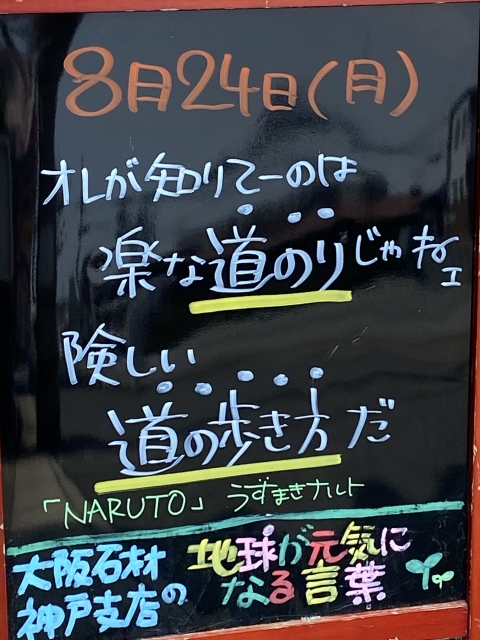 8月24日(月)
オレが知りてーのは
楽な道のりじゃねェ
険しい
道の歩き方だ
「NARUTO」 うずまきナルト
大阪石材
神戸支店の
地球が元気に
なる言葉